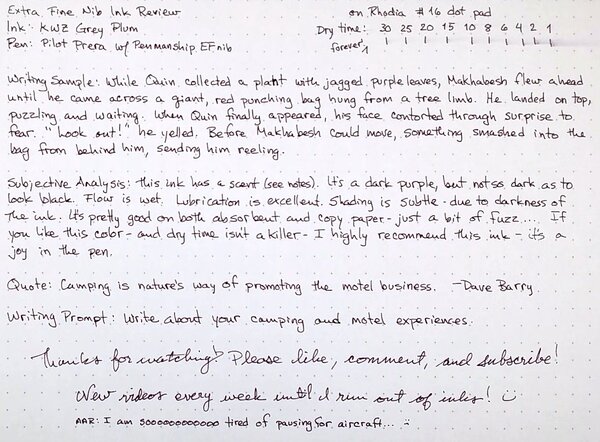 Extra Fine Nib Ink Review
on Rhodia #16 dot pad
Ink: KWZ Grey Plum
Dry time: 30 25 20 15 10 8 6 4 2 1
Pen: Pilot Prera w/ Penmanship EF nib
forever
Writing Sample: While Quin collected a plant with jagged purple leaves, Makhabesh flew ahead
until he came across a giant, red punching bag hung from a tree limb. He landed on top,
puzzling and waiting. When Quin finally appeared, his face contorted through surprise to
fear. "Look out!" he yelled. Before Makhabesh could move, something smashed into the
bag from behind him, sending him reeling.
Subjective Analysis: This ink has a scent (see notes). It's a dark purple, but not so dark as to
look black. Flow is wet. Lubrication is excellent. Shading is subtle - due to darkness of
the ink. It's pretty good on both absorbent and copy paper - just a bit of fuzz.... If
you like this color - and dry time isn't a killer - I highly recommend this ink - it's a
joy in the pen.
Quote: Camping is nature's way of promoting the motel business. - Dave Barry
Writing Prompt: Write about your camping and motel experiences.
Thanks for watching! Please like, comment, and subscribe!
New videos every week until I run out of inks!
AAR: I am soooooooooooo tired of pausing for aircraft...